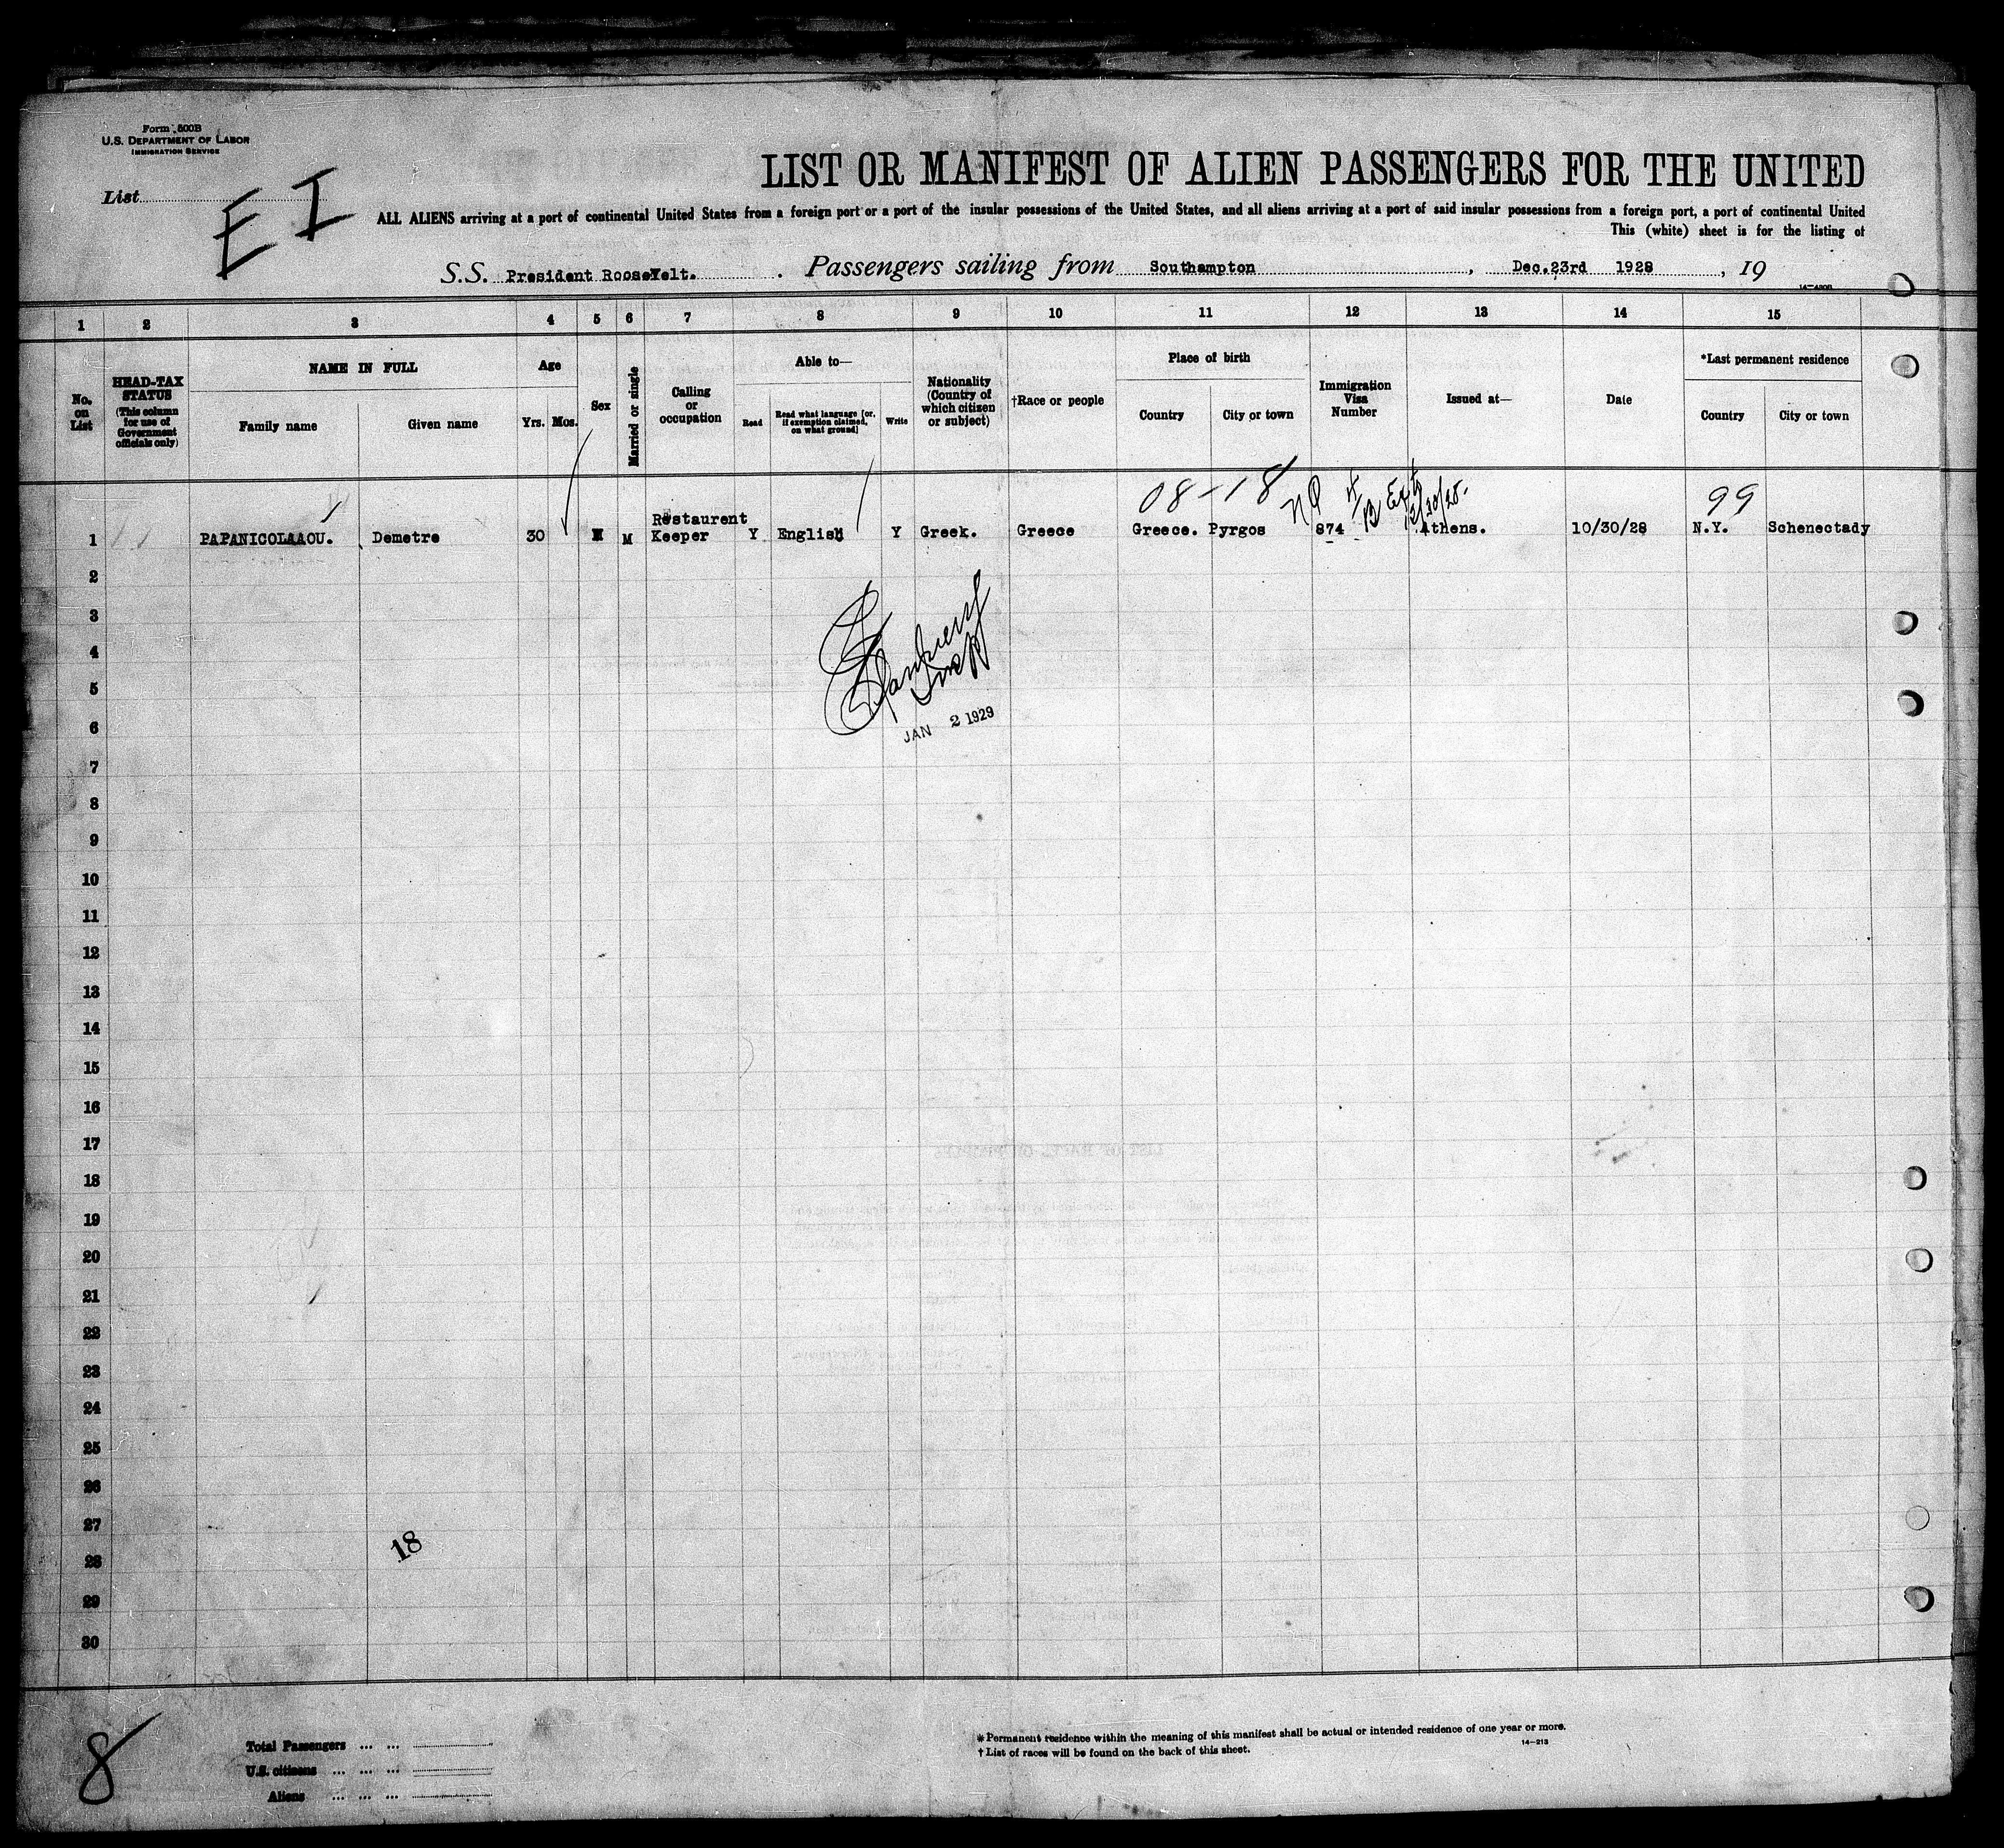 Form 500B
U.S. DEPARTMENT OF LABOR
IMMIGRATION SERVICE
List
E I
LIST OR MANIFEST OF ALIEN PASSENGERS FOR THE UNITED
ALL ALIENS arriving at a port of continental United States from a foreign port or a port of the insular possessions of the United States, and all aliens arriving at a port of said insular possessions from a foreign port, a port of continental United
This (white) sheet is for the listing of
S.S. President Roosevelt. Passengers sailing from Southampton, Dec.23rd 1928, 19
1 2 3 4 5 6 7 8 9 10 11 12 13 14 15
No. on List
HEAD-TAX STATUS (This column for use of Government officials only)
NAME IN FULL
Family name Given name
Age
Yrs. Mos.
Sex
Married or single
Calling or occupation
Able to—
Read Read what language [or, if exemption claimed, on what ground] Write
Nationality (Country of which citizen or subject)
†Race or people
Place of birth
Country City or town
Immigration Visa Number
Issued at—
Date
*Last permanent residence
Country City or town
08-18 99
1 PAPANICOLAAOU. Demetre 30 M M Restaurent Keeper Y English Y Greek. Greece Greece. Pyrgos 874 Athens. 10/30/28 N.Y. Schenectady
2
3
4
5
6
JAN 2 1929
7
8
9
10
11
12
13
14
15
16
17
18
19
20
21
22
23
24
25
26
27
18
28
29
30
8
Total Passengers ... ...
U.S. citizens ... ... ...
Aliens ... ... ...
* Permanent residence within the meaning of this manifest shall be actual or intended residence of one year or more.
† List of races will be found on the back of this sheet.
14-213